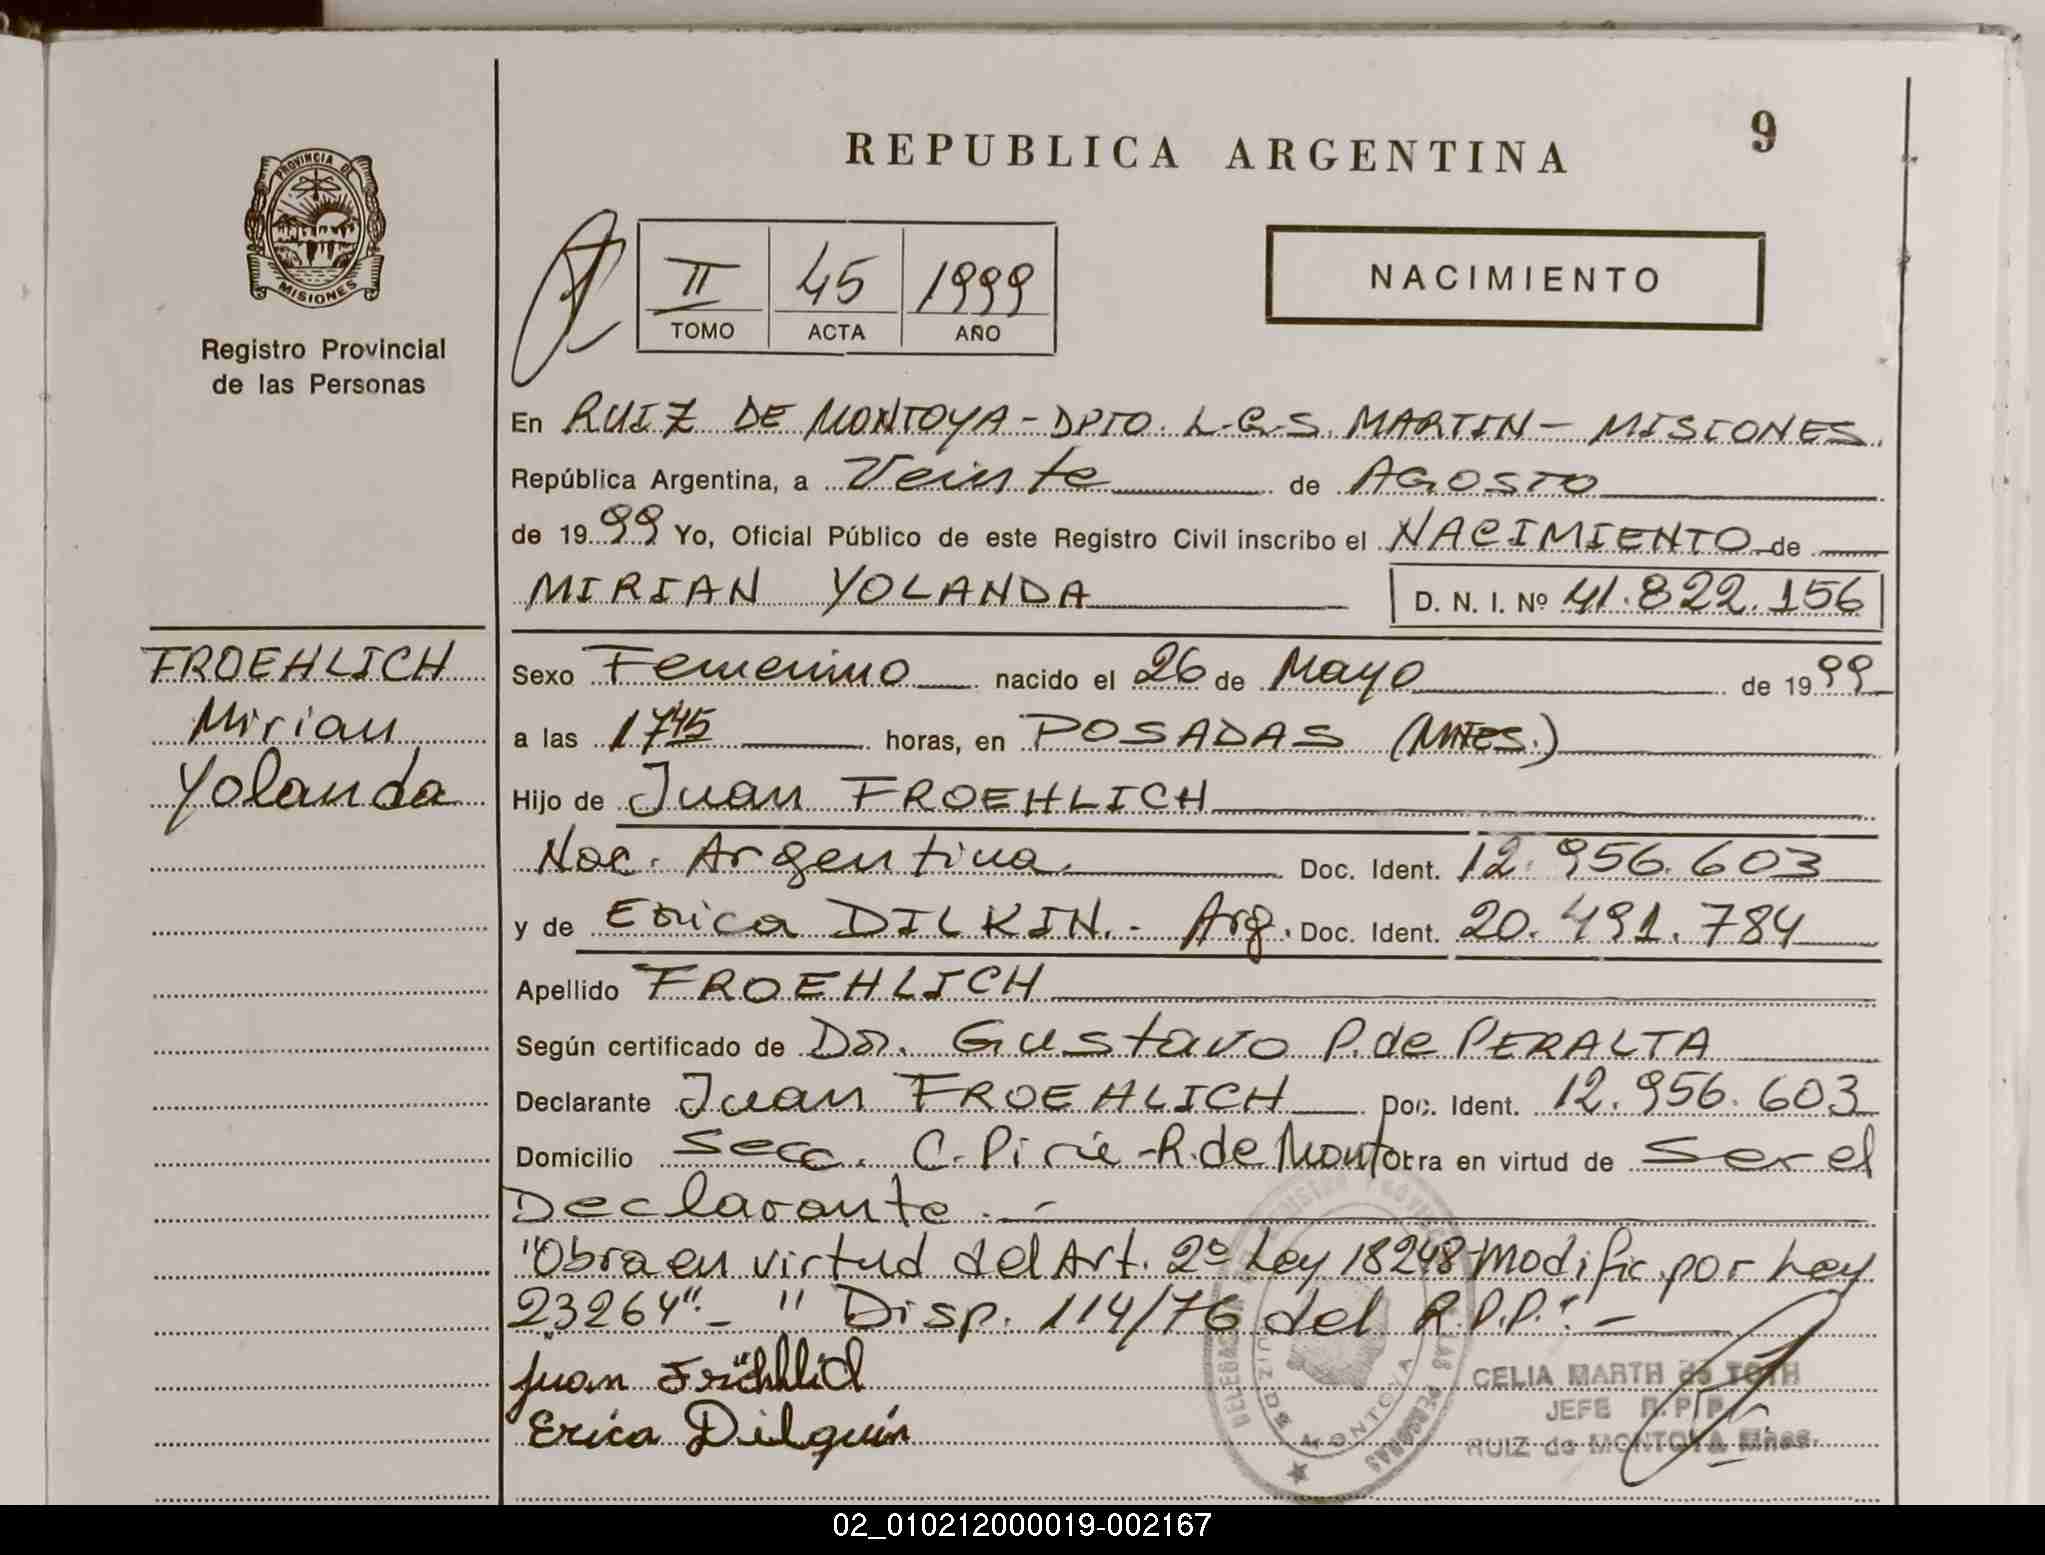 REPUBLICA ARGENTINA
9
PROVINCIA DE
MISIONES
Registro Provincial
de las Personas
II 45 1999
TOMO ACTA AÑO
NACIMIENTO
En RUIZ DE MONTOYA - DPTO. L.G.S. MARTIN - MISIONES.
República Argentina, a Veinte de AGOSTO
de 1999 Yo, Oficial Público de este Registro Civil inscribo el NACIMIENTO de
MIRIAN YOLANDA D. N. I. Nº 41.822.156
FROEHLICH
Mirian
Yolanda
Sexo Femenino nacido el 26 de Mayo de 1999
a las 1745 horas, en POSADAS (MNES.)
Hijo de Juan FROEHLICH
Nac. Argentina. Doc. Ident. 12.956.603
y de Erica DILKIN.- Arg. Doc. Ident. 20.491.784
Apellido FROEHLICH
Según certificado de Dr. Gustavo P. de PERALTA
Declarante Juan FROEHLICH Doc. Ident. 12.956.603
Domicilio Secc. C. Pirie - R. de Mont. Obra en virtud de Ser el
Declarante.-
"Obra en virtud del Art. 2º Ley 18248 Modific. por Ley
23264".- "Disp. 114/76 del R.P.P.".-
Juan Fröhlich
Erica Dilguin
CELIA MARTH de TOTH
JEFE R.P.P.
RUIZ de MONTOYA Mnes.
RUIZ DE MONTOYA
02_010212000019-002167